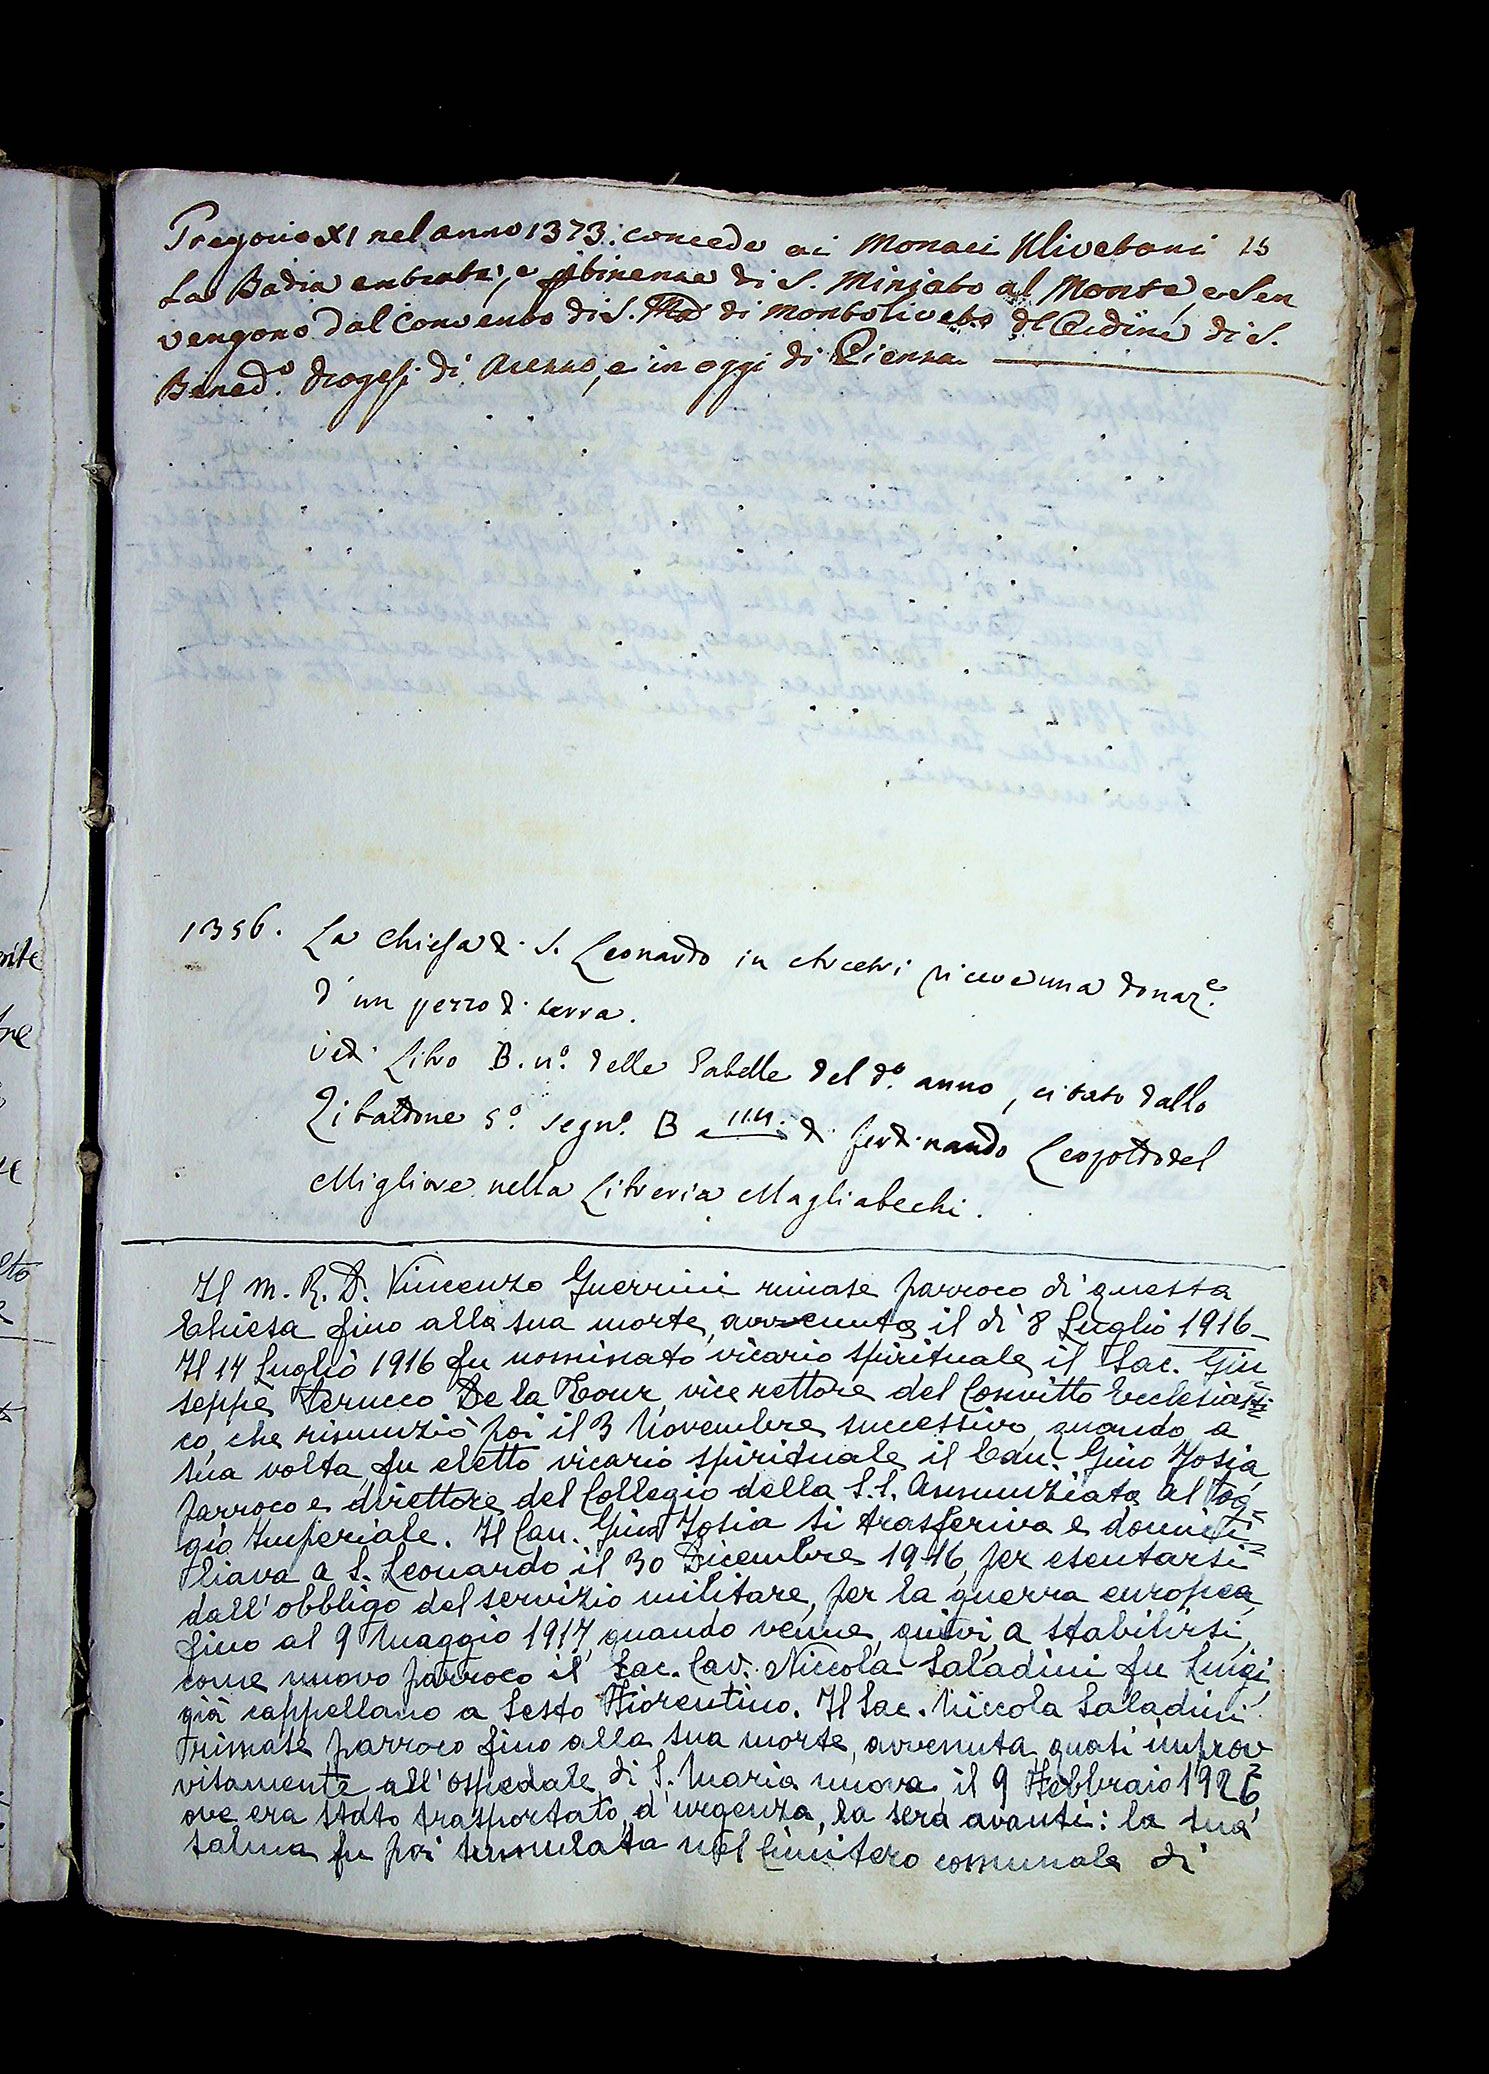 Gregorio XI nel anno 1373. concede ai Monaci Ulivetani 15
La Badia entrate, e attinenze di S. Miniato al Monte, e Sen
vengono dal Convento di S. Mad di Montoliveto del Ordine di S.
Bened.o diogesi di Arezzo, e in oggi di Pienza
1356. La Chiesa di S. Leonardo in Arcetri riceve una donaz.e
d'un pezzo di terra.
vedi Libro B. n.o delle Gabelle del d.o anno, citato dallo
Zibaldone 5.o segn.o B di Ferdinando Leopoldo del
Migliore nella Libreria Magliabechi.
Il M. R. D. Vincenzo Guerrini rimase parroco di questa
Chiesa fino alla sua morte, avvenuta il dì 8 Luglio 1916_
Il 14 Luglio 1916 fu nominato vicario spirituale il Sac. Giu=
seppe Perucco De la Tour, vice rettore del Convitto Ecclesiasti=
co, che rinunziò poi il 3 Novembre successivo, quando, a
sua volta, fu eletto vicario spirituale il Can. Gino Josia,
parroco e direttore del Collegio della S.S. Annunziata al Pog=
gio Imperiale. Il Can. Gino Josia si trasferiva e domici=
liava a S. Leonardo il 30 Dicembre 1916, per esentarsi
dall'obbligo del servizio militare, per la guerra europea,
fino al 9 Maggio 1917, quando venne, quivi, a stabilirsi,
come nuovo parroco il Sac. Cav. Niccola Saladini fu Luigi,
già cappellano a Sesto Fiorentino. Il Sac. Niccola Saladini
rimase parroco fino alla sua morte, avvenuta quasi improv
visamente, all'ospedale di S. Maria nuova, il 9 Febbraio 1926,
ove era stato trasportato, d'urgenza, la sera avanti: la sua
salma fu poi tumulata nel Cimitero comunale di